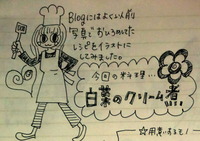 Blogにはよくいん前り
"写真で"おひろめしてた
レシピをイラストに
してみました。
今回の料理…
白菜のクリーム煮
☆用意するモノ